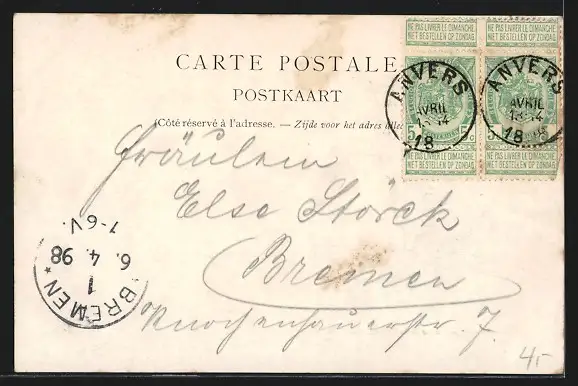 NE PAS LIVRER LE DIMANCHE NE PAS LIVRER LE DIMANCHE
NIET BESTELLEN OP ZONDAG NIET BESTELLEN OP ZONDAG
CARTE POSTALE
POSTKAART
(Côté réservé à l'adresse. — Zijde voor het adres alleen
ANVERS
AVRIL
18
ANVERS
AVRIL
18
5 5 5
NE PAS LIVRER LE DIMANCHE NE PAS LIVRER LE DIMANCHE
NIET BESTELLEN OP ZONDAG NIET BESTELLEN OP ZONDAG
Fräulein
Else Störck
Bremen
Knochenhauerstr. 7.
BREMEN *
1
6. 4. 98
1-6 V.
4,-